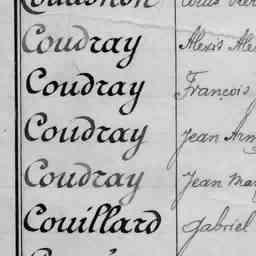 Coudray Alexis
Coudray François
Coudray Jean
Coudray Jean
Couillard Gabriel